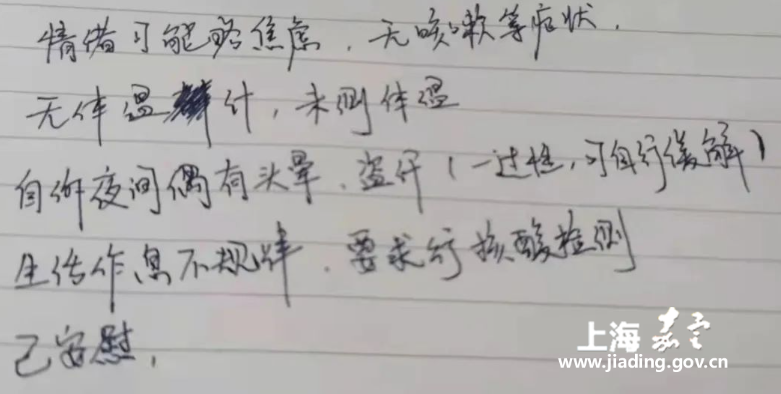 情绪可能略焦虑,无咳嗽等症状.
无体温计,未测体温
自诉夜间偶有头晕、盗汗(一过性,可自行缓解)
生活作息不规律,要求行核酸检测
已安慰,
上海嘉定
www.jiading.gov.cn